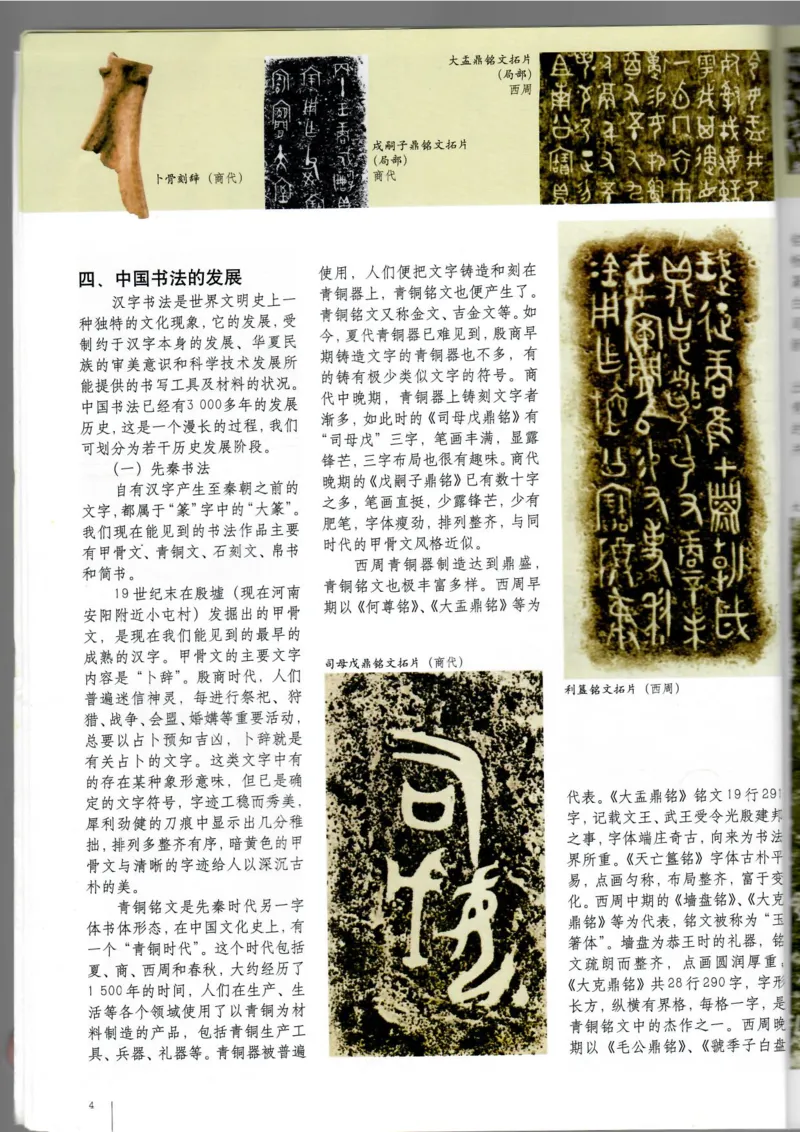 卜骨刻辞（商代）
戍嗣子鼎铭文拓片
（局部）
商代
大盂鼎铭文拓片
（局部）
西周
四、中国书法的发展
汉字书法是世界文明史上一
种独特的文化现象，它的发展，受
制约于汉字本身的发展、华夏民
族的审美意识和科学技术发展所
能提供的书写工具及材料的状况。
中国书法已经有3 000多年的发展
历史，这是一个漫长的过程，我们
可划分为若干历史发展阶段。
（一）先秦书法
自有汉字产生至秦朝之前的
文字，都属于“篆”字中的“大篆”。
我们现在能见到的书法作品主要
有甲骨文、青铜文、石刻文、帛书
和简书。
19世纪末在殷墟（现在河南
安阳附近小屯村）发掘出的甲骨
文，是现在我们能见到的最早的
成熟的汉字。甲骨文的主要文字
内容是“卜辞”。殷商时代，人们
普遍迷信神灵，每进行祭祀、狩
猎、战争、会盟、婚媾等重要活动，
总要以占卜预知吉凶，卜辞就是
有关占卜的文字。这类文字中有
的存在某种象形意味，但已是确
定的文字符号，字迹工稳而秀美，
犀利劲健的刀痕中显示出几分稚
拙，排列多整齐有序，暗黄色的甲
骨文与清晰的字迹给人以深沉古
朴的美。
青铜铭文是先秦时代另一字
体书体形态，在中国文化史上，有
一个“青铜时代”。这个时代包括
夏、商、西周和春秋，大约经历了
1 500年的时间，人们在生产、生
活等各个领域使用了以青铜为材
料制造的产品，包括青铜生产工
具、兵器、礼器等。青铜器被普遍
使用，人们便把文字铸造和刻在
青铜器上，青铜铭文也便产生了。
青铜铭文又称金文、吉金文等。如
今，夏代青铜器已难见到，殷商早
期铸造文字的青铜器也不多，有
的铸有极少类似文字的符号。商
代中晚期，青铜器上铸刻文字者
渐多，如此时的《司母戊鼎铭》有
“司母戊”三字，笔画丰满，显露
锋芒，三字布局也很有趣味。商代
晚期的《戍嗣子鼎铭》已有数十字
之多，笔画直挺，少露锋芒，少有
肥笔，字体瘦劲，排列整齐，与同
时代的甲骨文风格近似。
西周青铜器制造达到鼎盛，
青铜铭文也极丰富多样。西周早
期以《何尊铭》、《大盂鼎铭》等为
司母戊鼎铭文拓片（商代）
利簋铭文拓片（西周）
代表。《大盂鼎铭》铭文19行291
字，记载文王、武王受令光殷建邦
之事，字体端庄奇古，向来为书法
界所重。《天亡簋铭》字体古朴平
易，点画匀称，布局整齐，富于变
化。西周中期的《墙盘铭》、《大克
鼎铭》等为代表，铭文被称为“玉
箸体”。墙盘为恭王时的礼器，铭
文疏朗而整齐，点画圆润厚重，
《大克鼎铭》共28行290字，字形
长方，纵横有界格，每格一字，是
青铜铭文中的杰作之一。西周晚
期以《毛公鼎铭》、《虢季子白盘
4